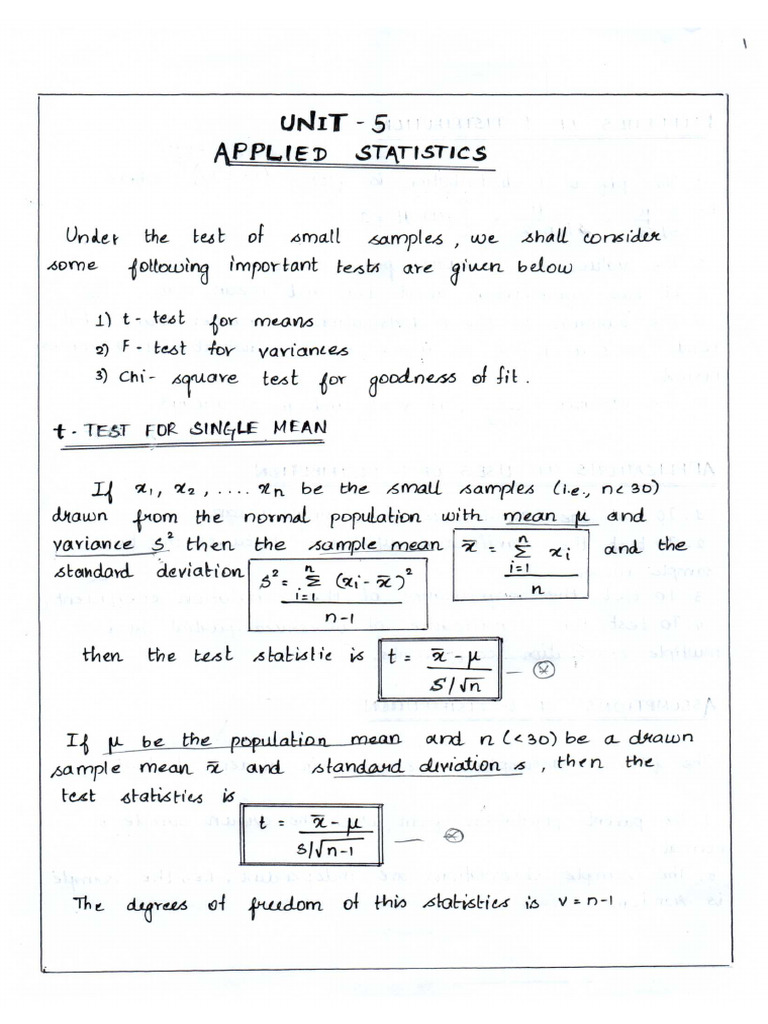 1
UNIT - 5
APPLIED STATISTICS
Under the test of small samples, we shall consider
some following important tests are given below
1) t - test for means
2) F - test for variances
3) Chi - square test for goodness of fit.
t - TEST FOR SINGLE MEAN
If x₁, x₂, .... xn be the small samples (i.e., n<30)
drawn from the normal population with mean μ and
variance S² then the sample mean x̄ = Σ(i=1 to n) xi / n and the
standard deviation S² = Σ(i=1 to n) (xi - x̄)² / n-1
then the test statistic is t = x̄ - μ / S/√n — ⊛
If μ be the population mean and n (<30) be a drawn
sample mean x̄ and standard deviation s, then the
test statistics is
t = x̄ - μ / s/√n-1 — ⊛
The degrees of freedom of this statistics is ν = n-1